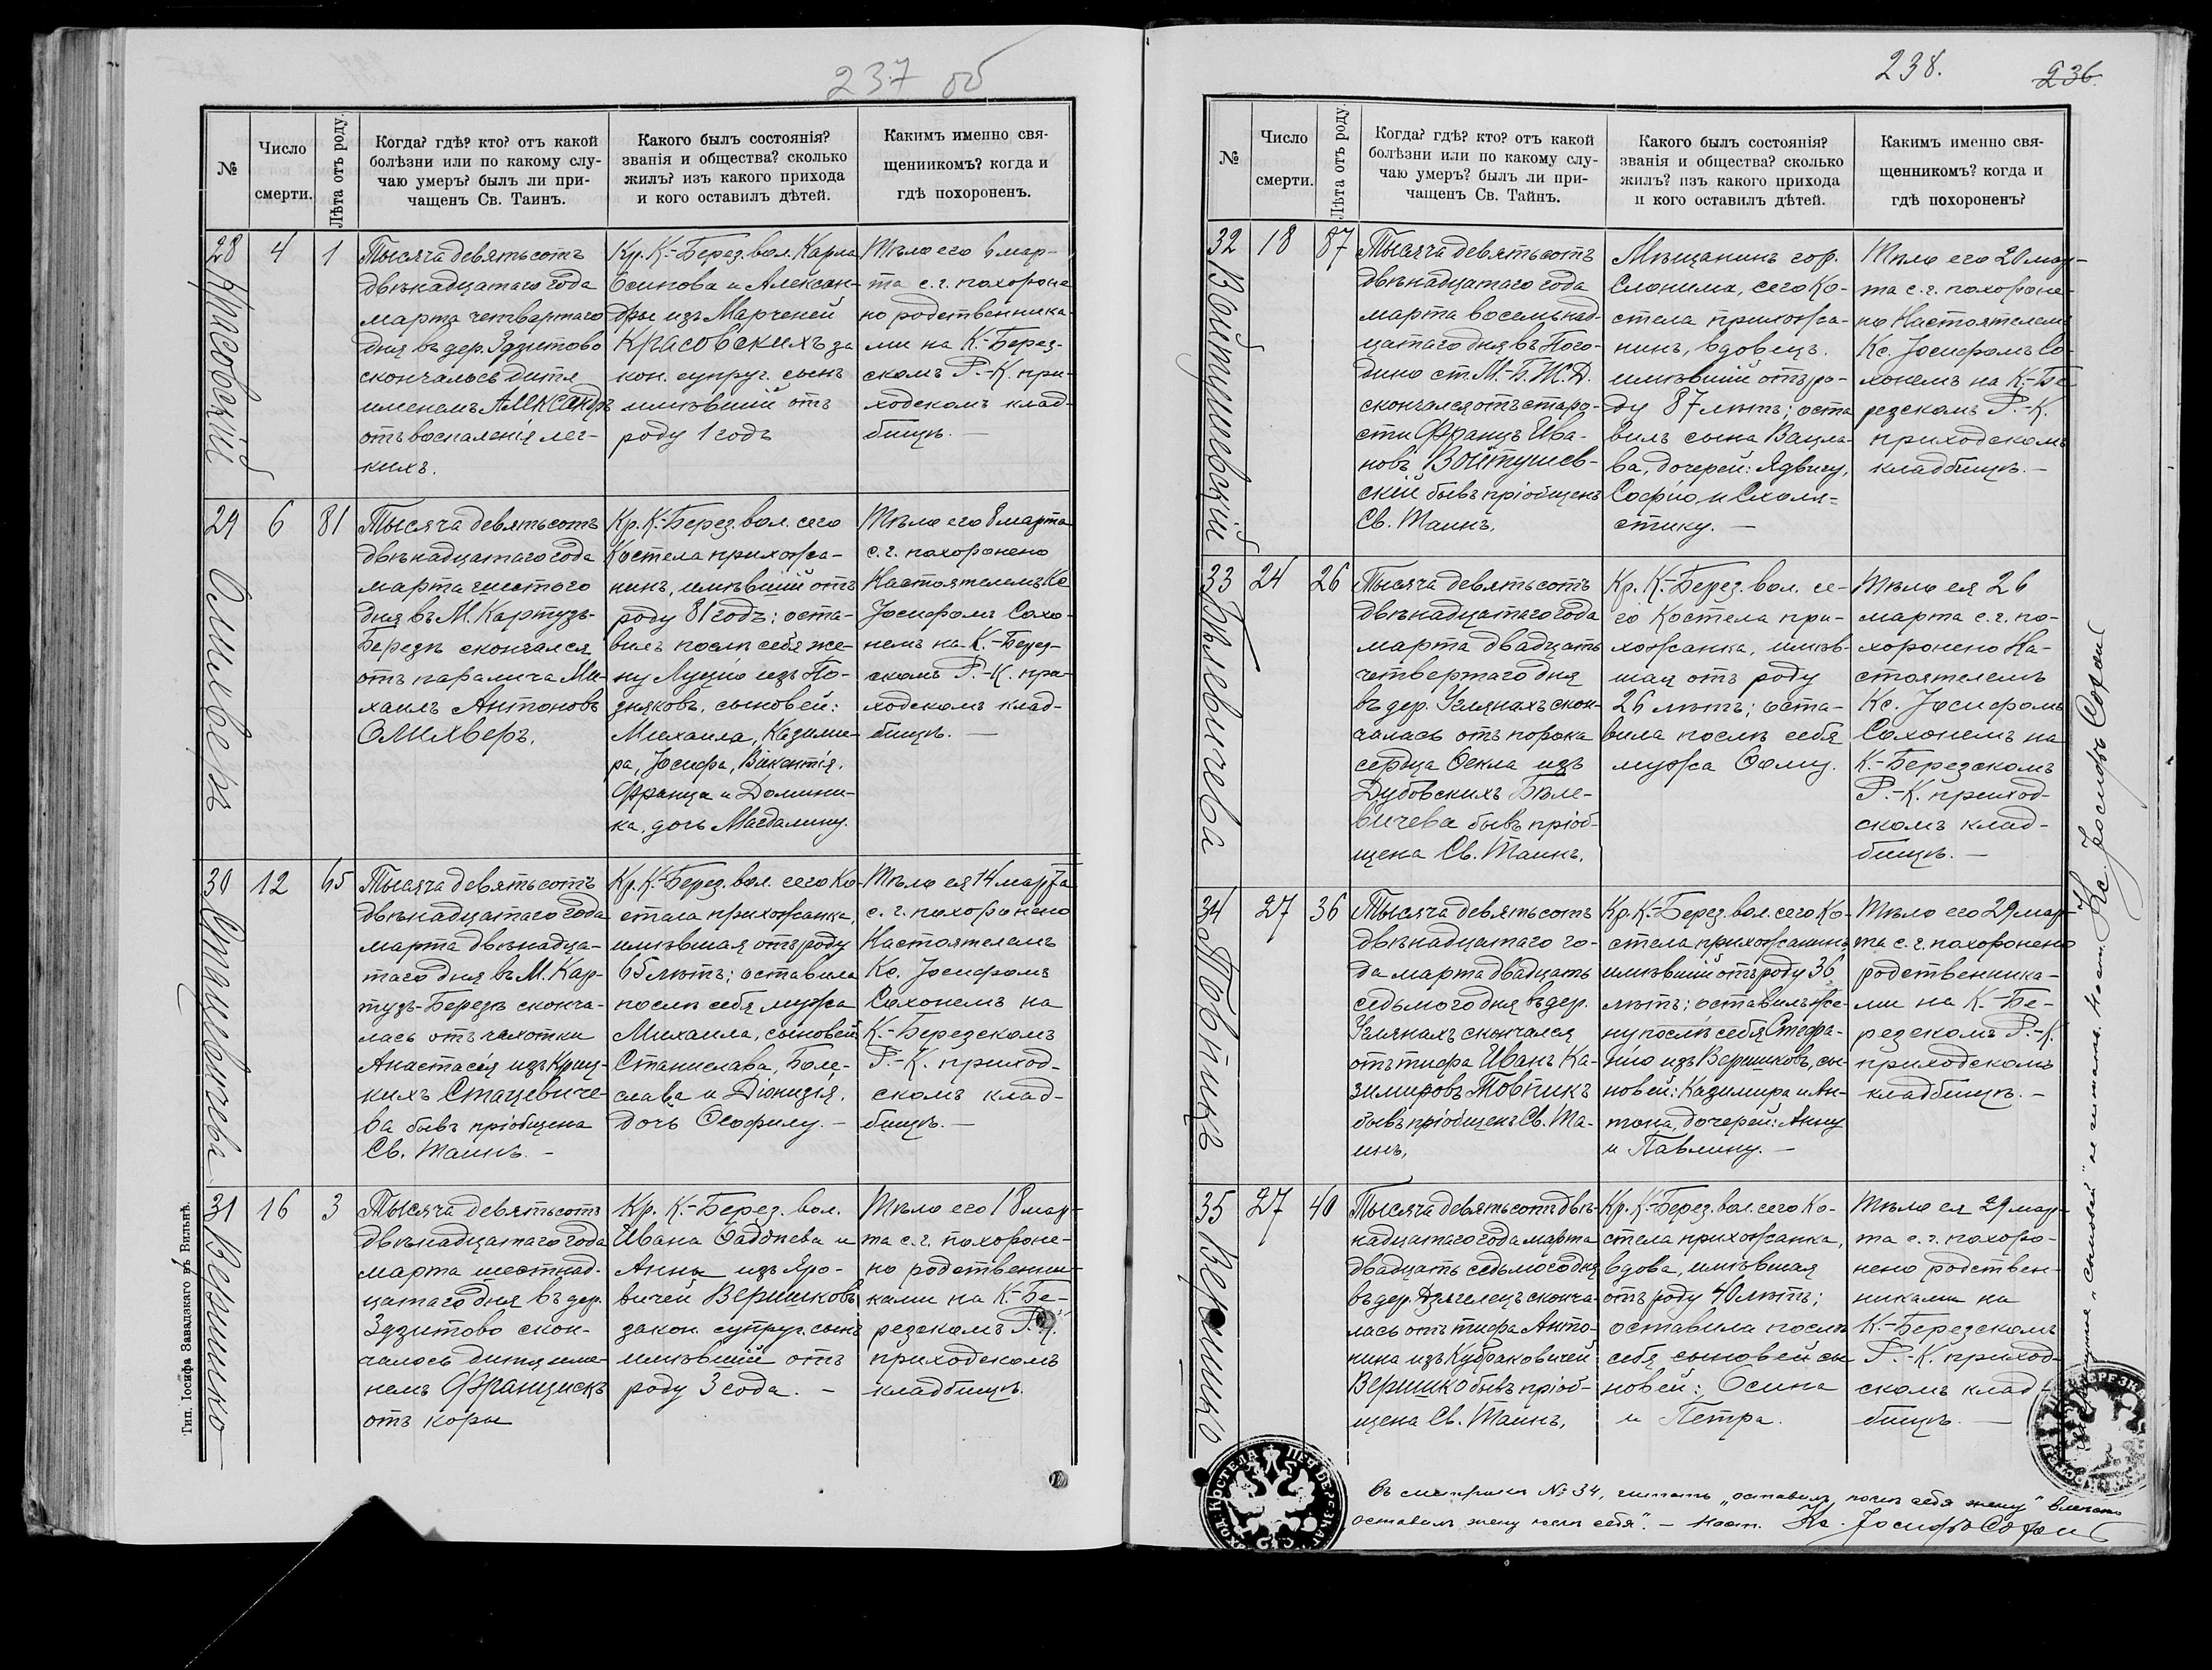 237 об
№
Число
смерти.
Лѣта отъ роду.
Когда? гдѣ? кто? отъ какой
болѣзни или по какому слу-
чаю умеръ? былъ ли при-
чащенъ Св. Таинъ.
Какого былъ состоянія?
званія и общества? сколько
жилъ? изъ какого прихода
и кого оставилъ дѣтей.
Какимъ именно свя-
щенникомъ? когда и
гдѣ похороненъ.
28
Красовскій
4
1
Тысяча девятьсотъ
двѣнадцатаго года
марта четвертаго
дня въ дер. Здзитово
скончалось дитя
именемъ Александръ
отъ воспаленія лег-
кихъ.
Кр. К.-Берез. вол. Карла
Осипова и Алексан-
дры изъ Марченей
Красовскихъ за
кон. супруг. сынъ
имѣвшій отъ
роду 1 годъ
Тѣло его 6 мар-
та с. г. похороне
но родственника-
ми на К.-Берез-
скомъ Р.-К. при-
ходскомъ клад-
бищѣ. —
29
Олихверъ
6
81
Тысяча девятьсотъ
двѣнадцатаго года
марта шестого
дня въ М. Картузъ-
Березѣ скончался
отъ паралича Ми-
хаилъ Антоновъ
Олихверъ.
Кр. К.-Берез. вол. сего
Костела прихожа-
нинъ, имѣвшій отъ
роду 81 годъ; оста-
вилъ послѣ себя же-
ну Луцію изъ По-
зняковъ, сыновей:
Михаила, Казими-
ра, Іосифа, Викентія,
Франца и Домини-
ка, дочь Магдалину.
Тѣло его 8 марта
с. г. похоронено
Настоятелемъ Кс
Іосифомъ Сохо-
немъ на К.-Берез-
скомъ Р.-К. при-
ходскомъ клад-
бищѣ. —
30
Стацевичева
12
65
Тысяча девятьсотъ
двѣнадцатаго года
марта двѣнадца-
таго дня въ М. Кар-
тузъ-Березѣ сконча-
лась отъ чахотки
Анастасія изъ Криц-
кихъ Стацевиче-
ва бывъ пріобщена
Св. Таинъ. -
Кр. К.-Берез. вол. сего Ко-
стела прихожанка,
имѣвшая отъ роду
65 лѣтъ; оставила
послѣ себя мужа
Михаила, сыновей
Станислава, Боле-
слава и Діонизія,
дочь Ѳеофилу. -
Тѣло ея 14 марта
с. г. похоронено
Настоятелемъ
Кс. Іосифомъ
Сохонемъ на
К.-Березскомъ
Р.-К. приход-
скомъ клад-
бищѣ. —
31
Вершко
16
3
Тысяча девятьсотъ
двѣнадцатаго года
марта шестнад-
цатаго дня въ дер.
Здзитово скон-
чалось дитя име-
немъ Францискъ
отъ кори
Кр. К.-Берез. вол.
Ивана Ѳаддѣева и
Анны изъ Яро-
вичей Вершковъ
закон. супруг. сынъ
имѣвшій отъ
роду 3 года. -
Тѣло его 18 мар-
та с. г. похороне-
но родственни-
ками на К.-Бе-
резскомъ Р.-К.
приходскомъ
кладбищѣ.
Тип. Іосифа Завадзкаго въ Вильнѣ.
238.
236.
№
Число
смерти.
Лѣта отъ роду.
Когда? гдѣ? кто? отъ какой
болѣзни или по какому слу-
чаю умеръ? былъ ли при-
чащенъ Св. Тайнъ.
Какого былъ состоянія?
званія и общества? сколько
жилъ? изъ какого прихода
и кого оставилъ дѣтей.
Какимъ именно свя-
щенникомъ? когда и
гдѣ похороненъ?
32
Войтушевскій
18
87
Тысяча девятьсотъ
двѣнадцатаго года
марта восемьнад-
цатаго дня въ Пого-
дино ст. М.-Б. Ж. Д.
скончался отъ старо-
сти Францъ Ива-
новъ Войтушев-
скій бывъ пріобщенъ
Св. Таинъ.
Мѣщанинъ гор.
Слонима, сего Ко-
стела прихожа-
нинъ, вдовецъ.
имѣвшій отъ ро-
ду 87 лѣтъ; оста
вилъ сына Вацла-
ва, дочерей: Ядвигу,
Софію и Схоля-
стику. —
Тѣло его 20 мар-
та с. г. похороне-
но Настоятелемъ
Кс. Іосифомъ Со-
хонемъ на К.-Бе
резскомъ Р.-К.
приходскомъ
кладбищѣ. —
33
Бѣлевичева
24
26
Тысяча девятьсотъ
двѣнадцатаго года
марта двадцать
четвертаго дня
въ дер. Углянахъ скон-
чалась отъ порока
сердца Ѳекла изъ
Дубовскихъ Бѣле-
вичева бывъ пріоб-
щена Св. Таинъ.
Кр. К.-Берез. вол. се-
го Костела при-
хожанка, имѣв-
шая отъ роду
26 лѣтъ; оста-
вила послѣ себя
мужа Ѳому.
Тѣло ея 26
марта с. г. по-
хоронено На-
стоятелемъ
Кс. Іосифомъ
Сохонемъ на
К.-Березскомъ
Р.-К. приход-
скомъ клад-
бищѣ. —
34
Товпикъ
27
36
Тысяча девятьсотъ
двѣнадцатаго го-
да марта двадцать
седьмого дня въ дер.
Углянахъ скончался
отъ тифа Иванъ Ка-
зимировъ Товпикъ
бывъ пріобщенъ Св. Та-
инъ.
Кр. К.-Берез. вол. сего Ко-
стела прихожанинъ
имѣвшій отъ роду 36
лѣтъ; оставилъ же-
ну послѣ себя Стефа-
нію изъ Вершковъ, сы-
новей: Казимира и Ан-
тона, дочерей: Анну
и Павлину. —
Тѣло его 29 мар-
та с. г. похоронено
родственника-
ми на К.-Бе-
резскомъ Р.-К.
приходскомъ
кладбищѣ. -
35
Вершко
27
40
Тысяча девятьсотъ двѣ-
надцатаго года марта
двадцать седьмого дня
въ дер. Дзягелецъ сконча
лась отъ тифа Анто-
нина изъ Кубраковичей
Вершко бывъ пріоб-
щена Св. Таинъ.
Кр. К.-Берез. вол. сего Ко-
стела прихожанка,
вдова, имѣвшая
отъ роду 40 лѣтъ;
оставила послѣ
себя сыновей сы
новей: Осипа
и Петра.
Тѣло ея 29 мар-
та с. г. похоро-
нено родствен-
никами на
К.-Березскомъ
Р.-К. приход-
скомъ клад-
бищѣ. —
№ 34, читать „оставилъ послѣ себя жену" вмѣсто
оставилъ жену послѣ себя". — Наст. Кс. Іосифъ Сохонь
„сыновей" не читать. Наст. Кс Іосифъ Сохонь